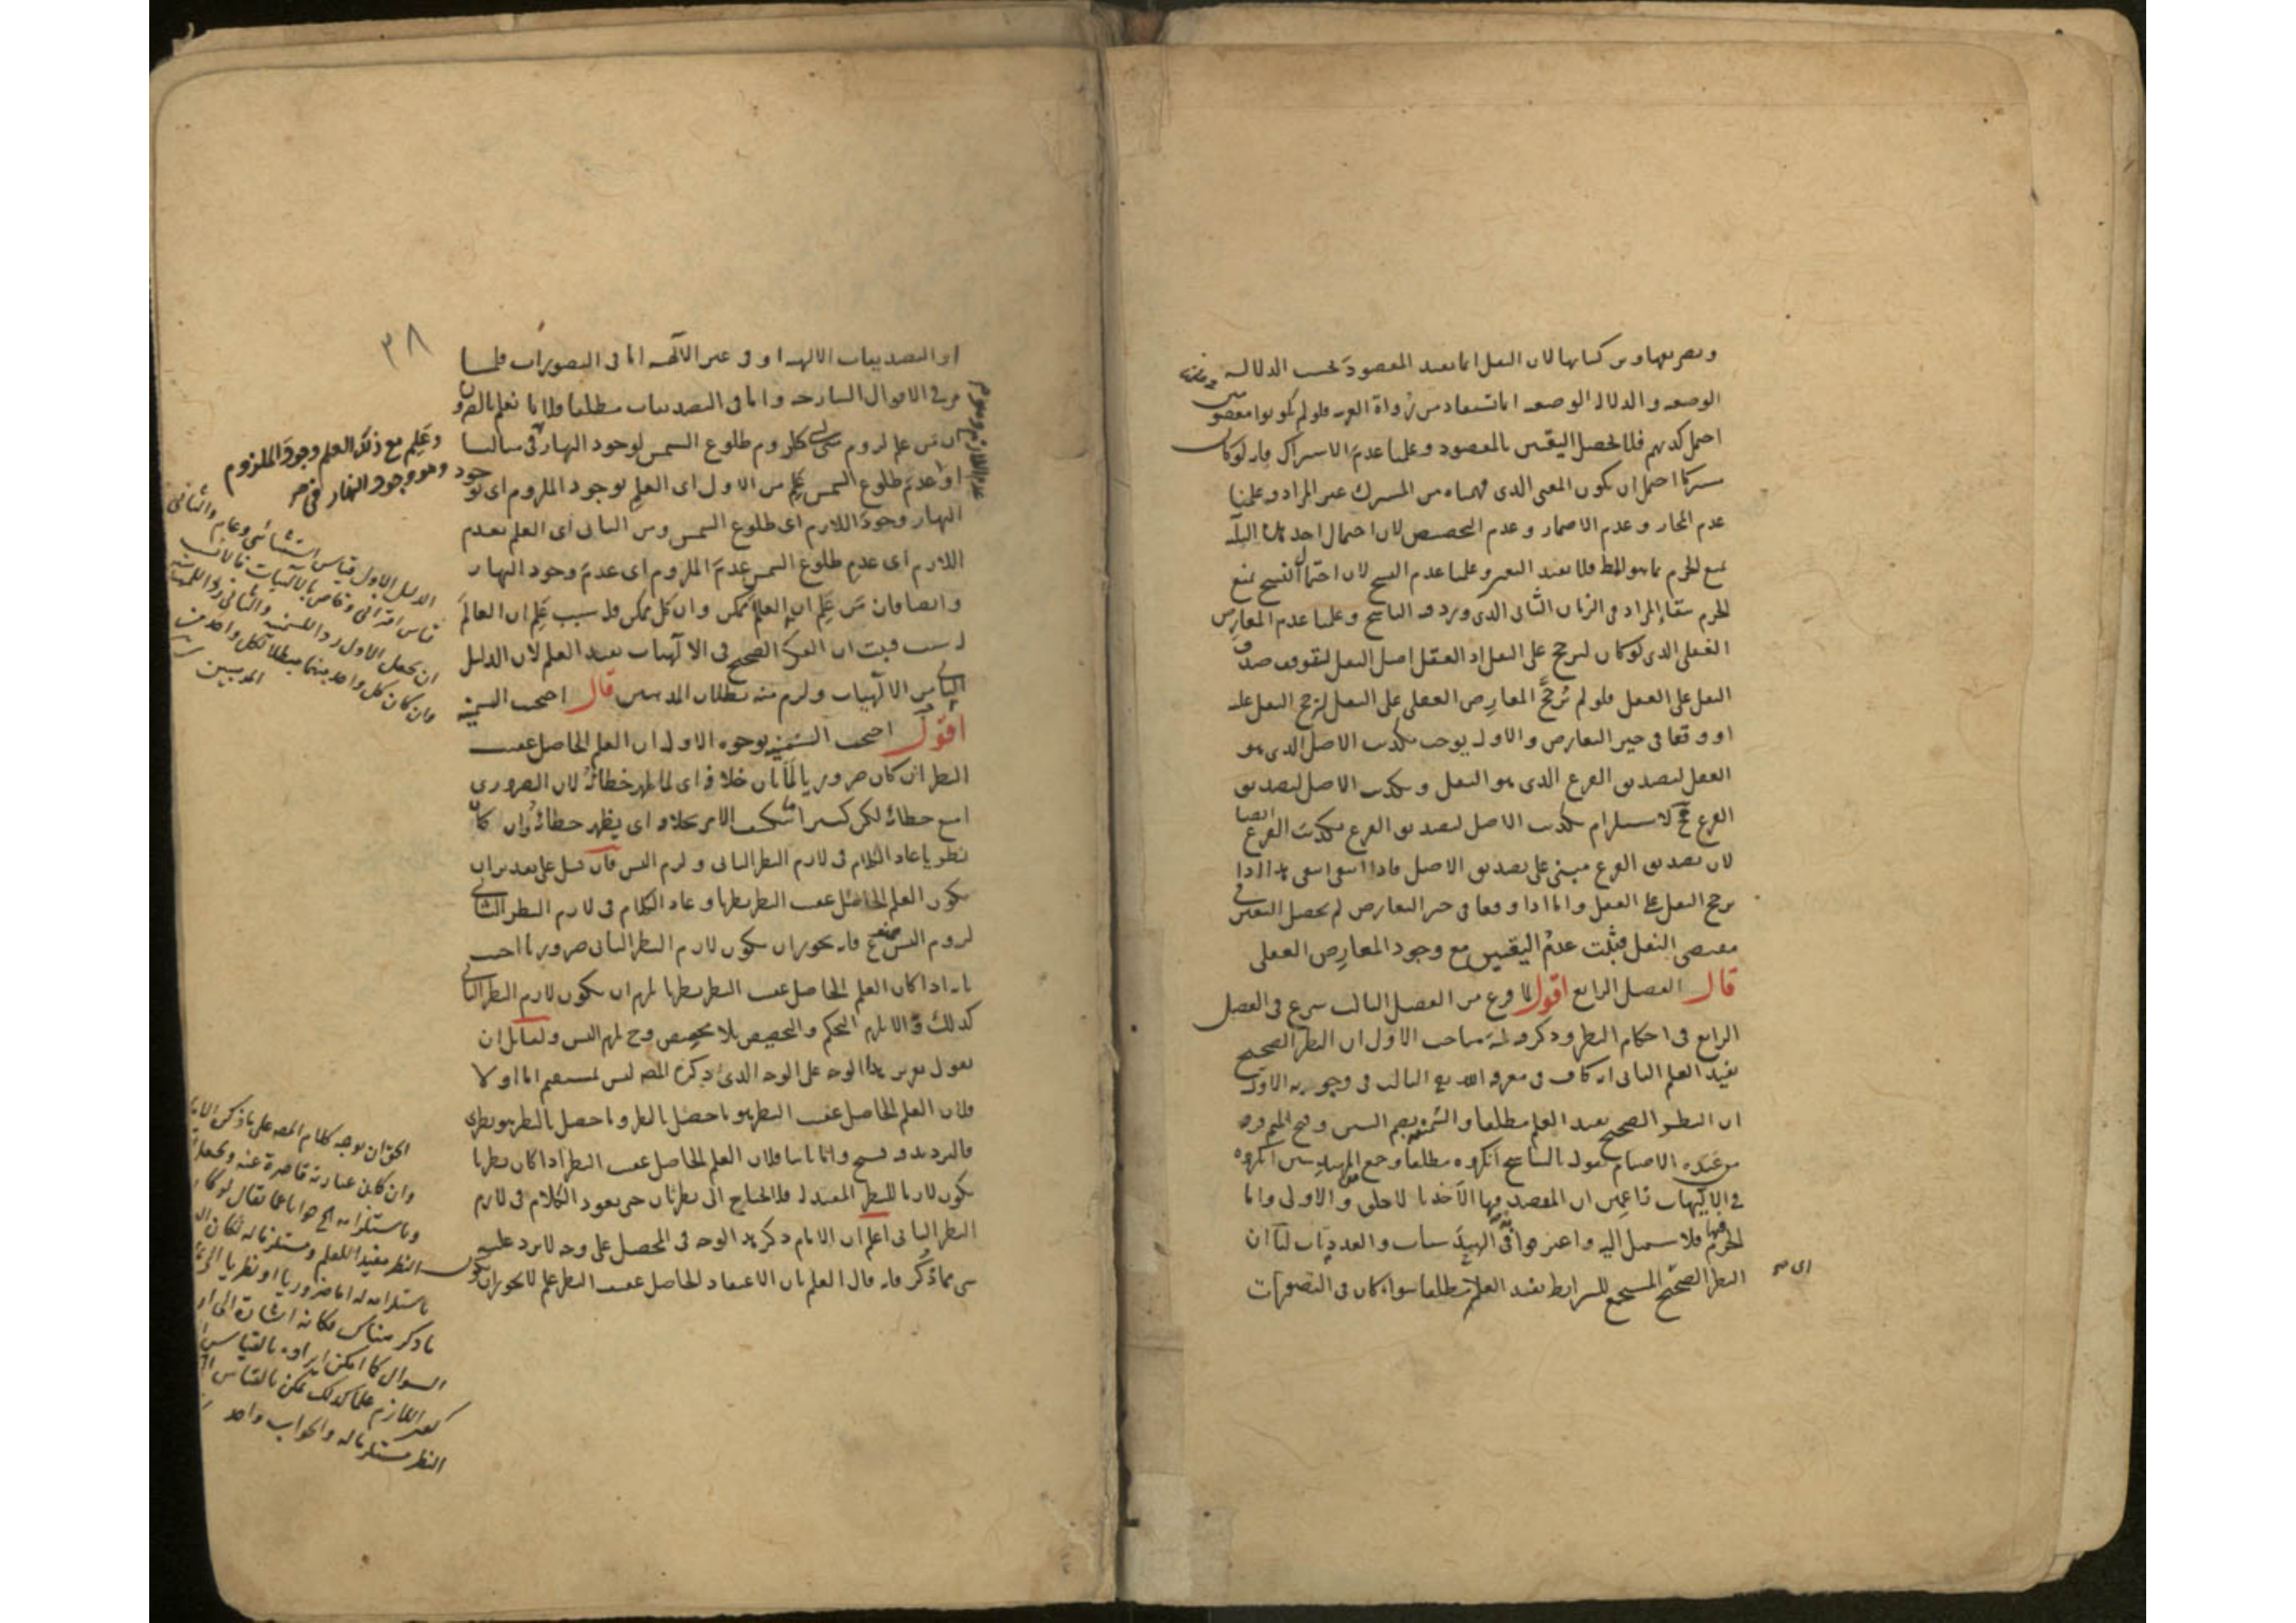 وتصريفها ومن كتابها لان النقل انما يفيد المقصود بحسب الدلالة
الوضعية والدلالة الوضعية انما تستفاد من رواة العربية فلو لم يكونوا معصومين
احتمل كذبهم فلا يحصل اليقين بالمقصود وعلمنا عدم الاشتراك فانه لو كان
مشتركا احتمل ان يكون المعنى الذى فهمناه من المشترك غير المراد وعلمنا
عدم المجاز وعدم الاضمار وعدم التخصيص لان احتمال احد هذه الثلاثة
يمنع الجزم بما هو الظ فلا يفيد اليقين وعلمنا عدم النسخ لان احتمال النسخ يمنع
الجزم ببقاء المراد فى الزمان الثانى الذى ورد فيه الناسخ وعلمنا عدم المعارض
العقلى الذى لو كان لرجح على النقل اذ العقل اصل النقل لتوقف صدق
النقل على العقل فلو لم يرجح المعارض العقلى على النقل لرجح النقل عليه
او وقعا فى حيز التعارض والاول يوجب تكذيب الاصل الذى هو
العقل لتصديق الفرع الذى هو النقل وتكذيب الاصل لتصديق
الفرع مح لاستلزام تكذيب الاصل لتصديق الفرع تكذيب الفرع ايضا
لان تصديق الفرع مبنى على تصديق الاصل فاذا انتفى انتفى هذا اذا
يرجح النقل على العقل واما اذا وقعا فى حيز التعارض لم يحصل اليقين فى
مقتضى النقل فثبت عدم اليقين مع وجود المعارض العقلى
قال الفصل الرابع اقول لما فرغ من الفصل الثالث شرع فى الفصل
الرابع فى احكام النظر وذكر فيه ثلثة مباحث الاول ان النظر الصحيح
يفيد العلم الثانى انه كاف فى معرفة الله تع الثالث فى وجوبه الاول
ان النظر الصحيح يفيد العلم مطلقا والسمنية بضم السين وفتح الميم فرقة
من عبدة الاصنام تقول بالتناسخ انكروه مطلقا وجمع من المهندسين انكروه
فى الالهيات زاعمين ان المقصد فيها الاخذ بالاحلى والاولى واما
الجزم فيها فلا سبيل اليه واعترفوا به فى الهندسيات والعدديات لنا ان
النظر الصحيح المستجمع للشرايط يفيد العلم مطلقا سواء كان فى التصورات
اى صح
٣٨
او التصديقات الالهية او فى غير الالهية اما فى التصورات فلما
مر فى الاقوال الشارحة واما فى التصديقات مطلقا فلانا نعلم بالضرورة
ان من علم لزوم شئ لشئ كلزوم طلوع الشمس لوجود النهار فى مثالنا
او عدم طلوع الشمس علم من الاول اى العلم بوجود الملزوم اى بوجود
النهار وجود اللازم اى طلوع الشمس ومن الثانى اى العلم بعدم
اللازم اى عدم طلوع الشمس عدم الملزوم اى عدم وجود النهار
وايضا فان من علم ان العالم ممكن وان كل ممكن فله سبب علم ان العالم
له سبب فثبت ان الفكر الصحيح فى الالهيات يفيد العلم لان الدليل
الثانى من الالهيات ولزم منه بطلان المذهبين قال احتجت السمنية
اقول احتجت السمنية بوجوه الاول ان العلم الحاصل عقيب
النظر ان كان ضروريا لما بان خلافه اى لما ظهر خطائه لان الضرورى
امتنع خطائه لكن كثيرا ما ينكشف الامر بخلافه اى يظهر خطائه وان كان
نظريا عاد الكلام فى لازم النظر الثانى ولزم التس فان قيل على تقدير ان
يكون العلم الحاصل عقيب النظر نظريا وعاد الكلام فى لازم النظر الثانى
لزوم التس ممنوع فانه يجوز ان يكون لازم النظر الثانى ضروريا اجيب
بانه اذا كان العلم الحاصل عقيب النظر نظريا لزم ان يكون لازم النظر الثانى
كذلك والا لزم التحكم والتخصيص بلا مخصص وح لزم التس ولقائل ان
يقول تقرير هذا الوجه على الوجه الذى ذكره المص ليس بمستقيم اما اولا
فلان العلم الحاصل عقيب النظر هو ما حصل بالنظر وما حصل بالنظر هو نظرى
فالترديد فيه قبيح واما ثانيا فلان العلم الحاصل عقيب النظر اذا كان نظريا
يكون لازما للنظر المفيد له فلا احتياج الى نظر ثان حتى يعود الكلام فى لازم
النظر الثانى اعلم ان الامام ذكر هذا الوجه فى المحصل على وجه لا يرد عليه
شى مما ذكر فانه قال العلم بان الاعتقاد الحاصل عقيب النظر علم لا يجوز ان يكون
وعلم مع ذلك العلم وجود الملزوم
وهو وجود النهار فى صح
الدليل الاول قياس استثنائى وعام والثانى
قياس اقترانى وخاص بالالهيات فالانسب
ان يجعل الاول ردا للسمنية والثانى ردا للمهندسين
وان كان كل واحد منهما مبطلا لكل واحد من
المذهبين
الحق ان يوجه كلام المص على ما ذكره الامام
وان كان عبارته قاصرة عنه ويجعل
النظر مفيدا للعلم ومستلزما له لكان
باستلزامه له اما ضروريا او نظريا
ما ذكر
السوال كما امكن ايراده بالقياس
اللازم علما كذلك يمكن بالقياس
النظر مستلزما له والجواب واحد